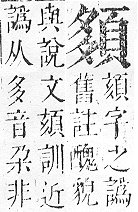 頦字之譌
舊註醜貌
與說文頦訓近
譌从多音朶非